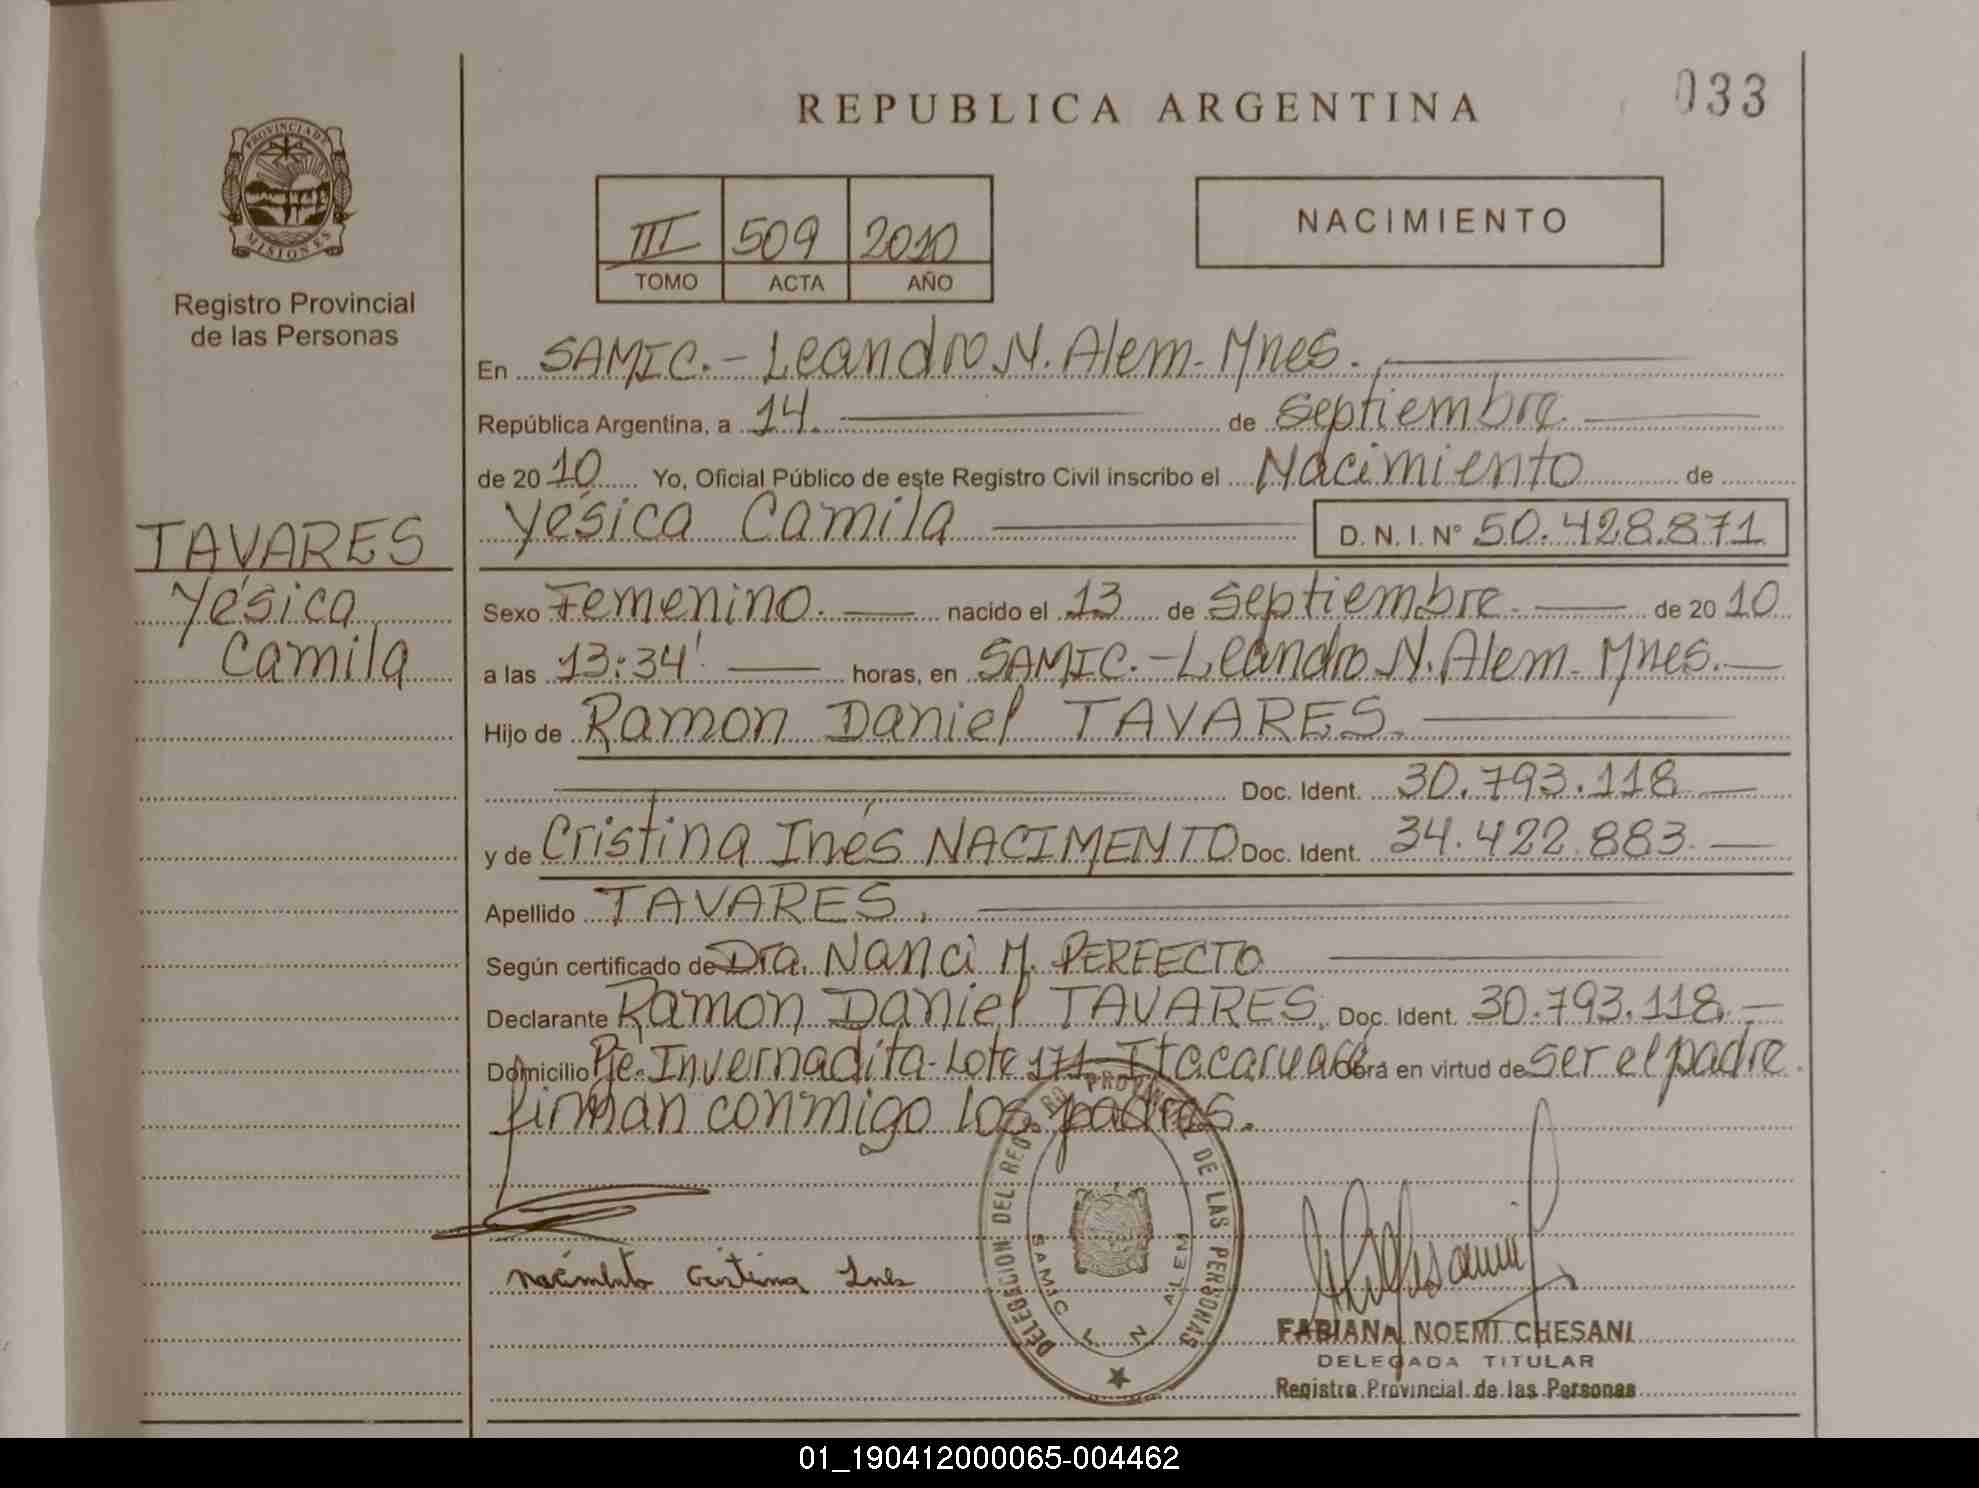 REPUBLICA ARGENTINA
033
PROVINCIA DE MISIONES
Registro Provincial
de las Personas
III 509 2010
TOMO ACTA AÑO
NACIMIENTO
En SAMIC.- Leandro N. Alem- Mnes.
República Argentina, a 14. de septiembre
de 2010 Yo, Oficial Público de este Registro Civil inscribo el Nacimiento de
TAVARES
Yésica
Camila
Yésica Camila D. N. I. N° 50.428.871
Sexo Femenino. nacido el 13 de septiembre de 2010
a las 13:34' horas, en SAMIC.-Leandro N. Alem- Mnes.
Hijo de Ramon Daniel TAVARES.
Doc. Ident. 30.793.118
y de Cristina Inés NACIMENTO Doc. Ident. 34.422.883
Apellido TAVARES.
Según certificado de Dra. Nanci M. PERFECTO
Declarante Ramon Daniel TAVARES. Doc. Ident. 30.793.118.
Domicilio Pje. Invernadita-Lote 171- Itacaruaré obrá en virtud de ser el padre.
firman conmigo los padres.
DELEGACION DEL REG RO PROVINCIAL DE LAS PERSONAS
SAMIC L N ALEM
Nacimento Cristina Ines
FABIANA NOEMI CHESANI
DELEGADA TITULAR
Registro Provincial de las Personas
01_190412000065-004462